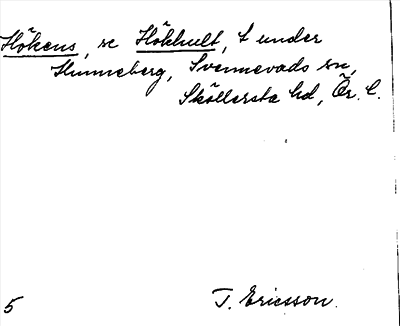 Hökens, se Hökhult, t under
Hunneberg, Svennevads sn,
Sköllersta hd, Ör. l.
5 T. Ericsson.